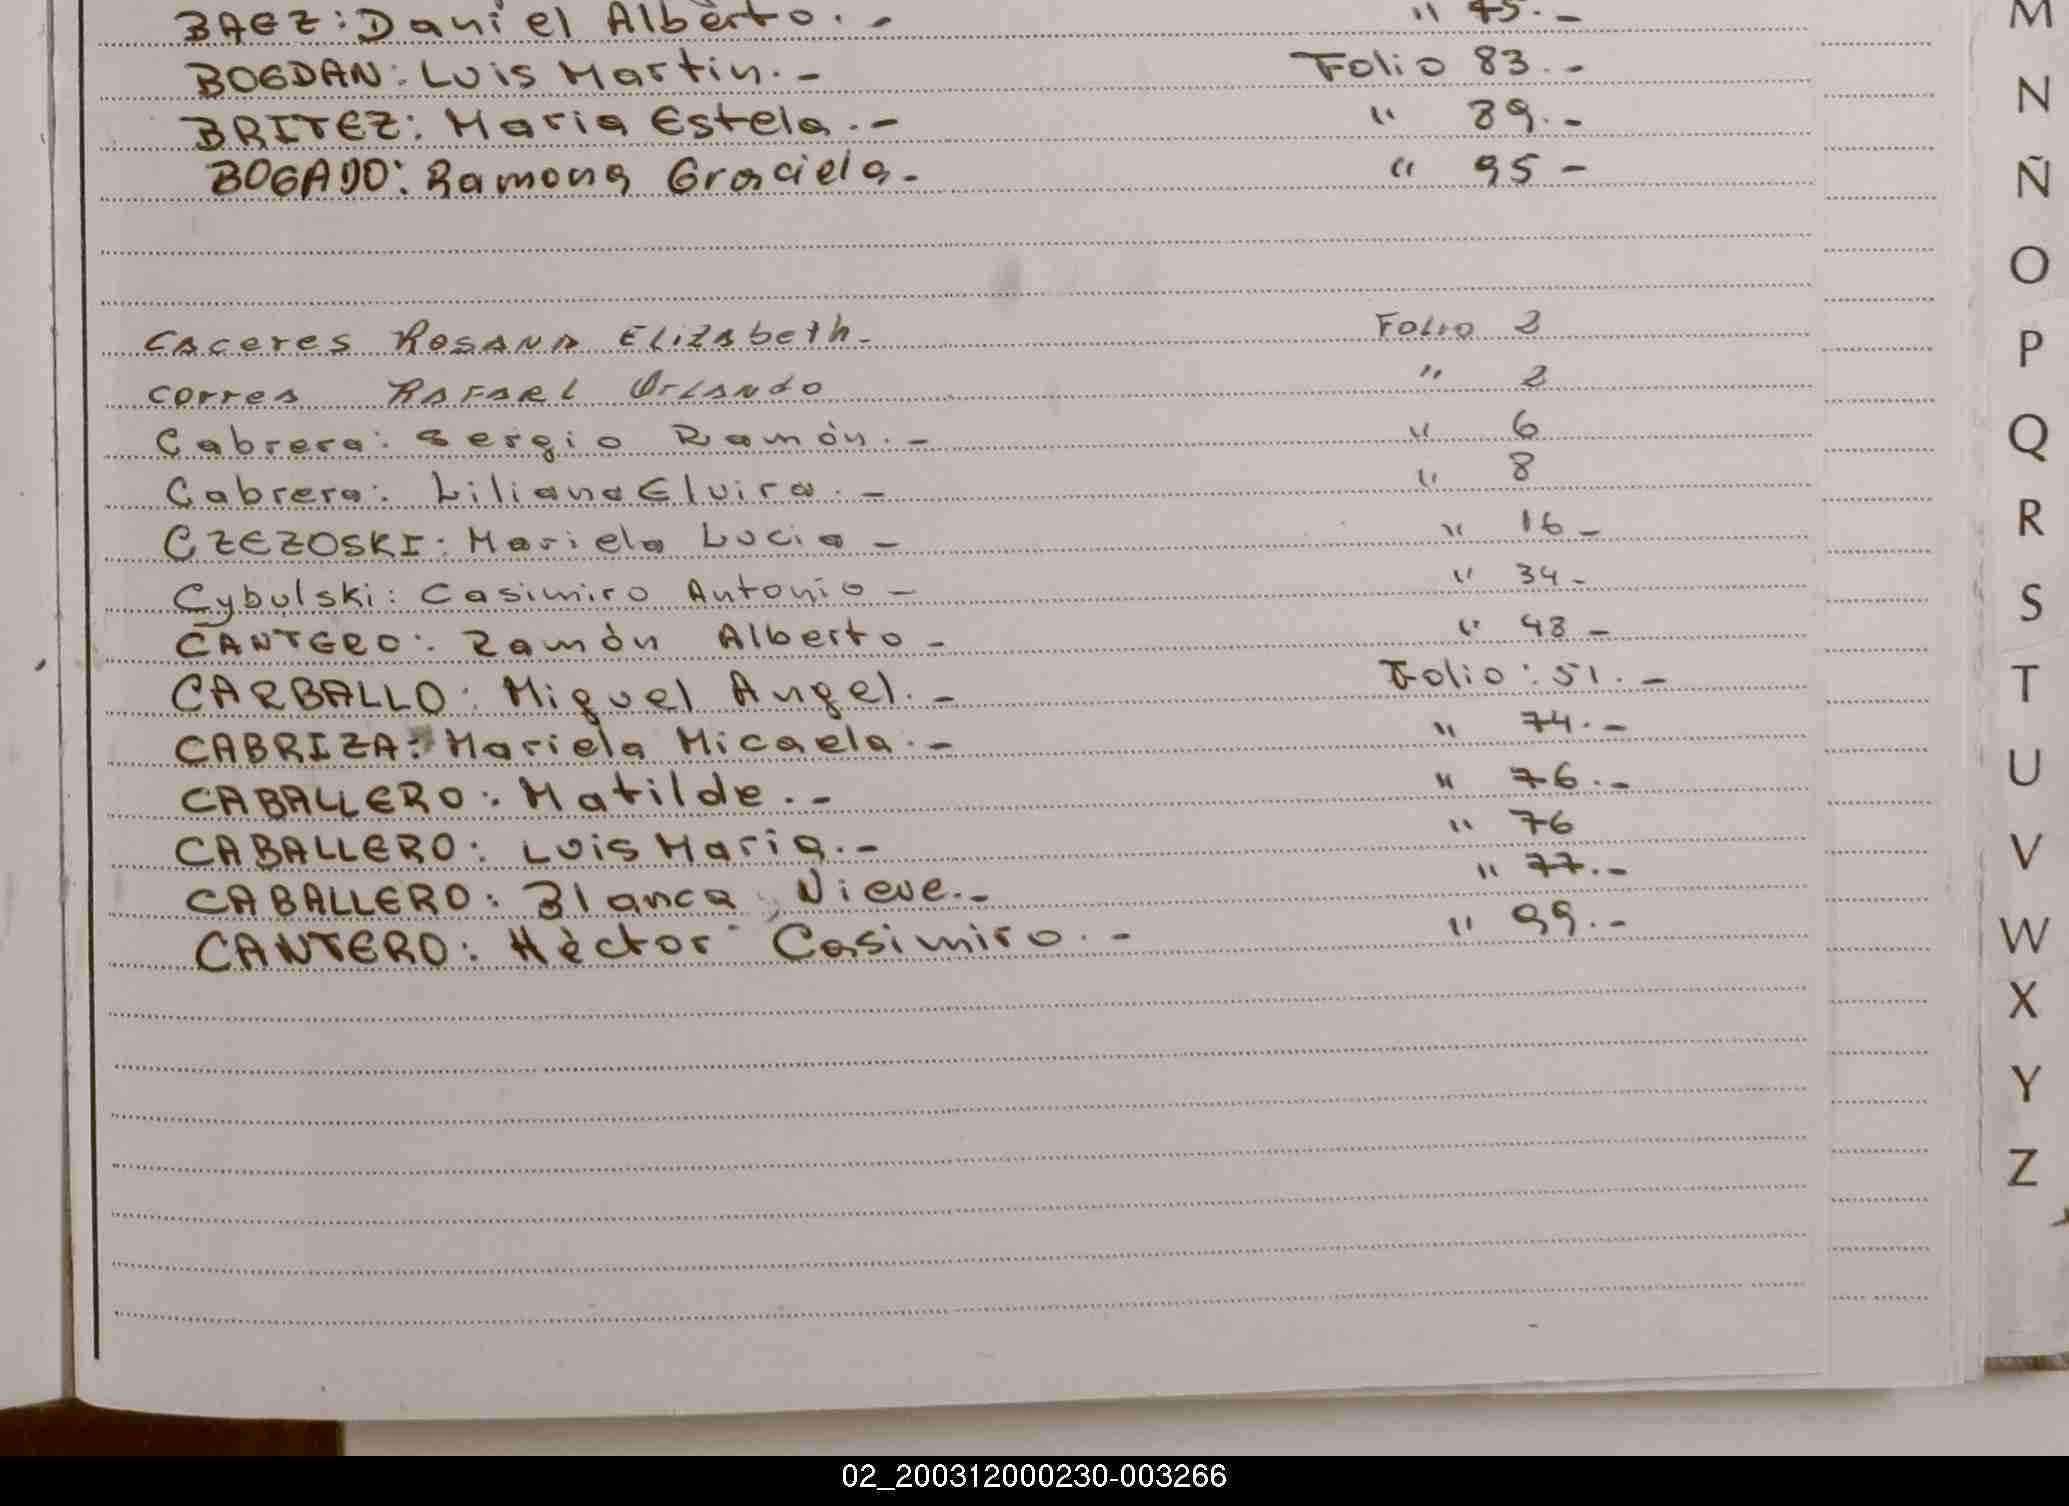 BAEZ: Daniel Alberto. - " 45. -
BOGDAN: Luis Martin. - Folio 83. -
BRITEZ: Maria Estela. - " 89. -
BOGADO: Ramona Graciela. - " 95 -
Caceres Rosana Elizabeth - Folio 2
Corres Rafael Orlando " 2
Cabrera: Sergio Ramón. - " 6
Cabrera: Liliana Elvira. - " 8
CZEZOSKI: Mariela Lucia - " 16 -
Cybulski: Casimiro Antonio - " 34 -
CANTERO: Ramón Alberto - " 48 -
CARBALLO: Miguel Angel. - Folio: 51. -
CABRIZA: Mariela Micaela. - " 74. -
CABALLERO: Matilde. - " 76. -
CABALLERO: Luis Maria. - " 76
CABALLERO: Blanca Nieve. - " 77. -
CANTERO: Hèctor Casimiro. - " 99. -
M
N
Ñ
O
P
Q
R
S
T
U
V
W
X
Y
Z
02_200312000230-003266